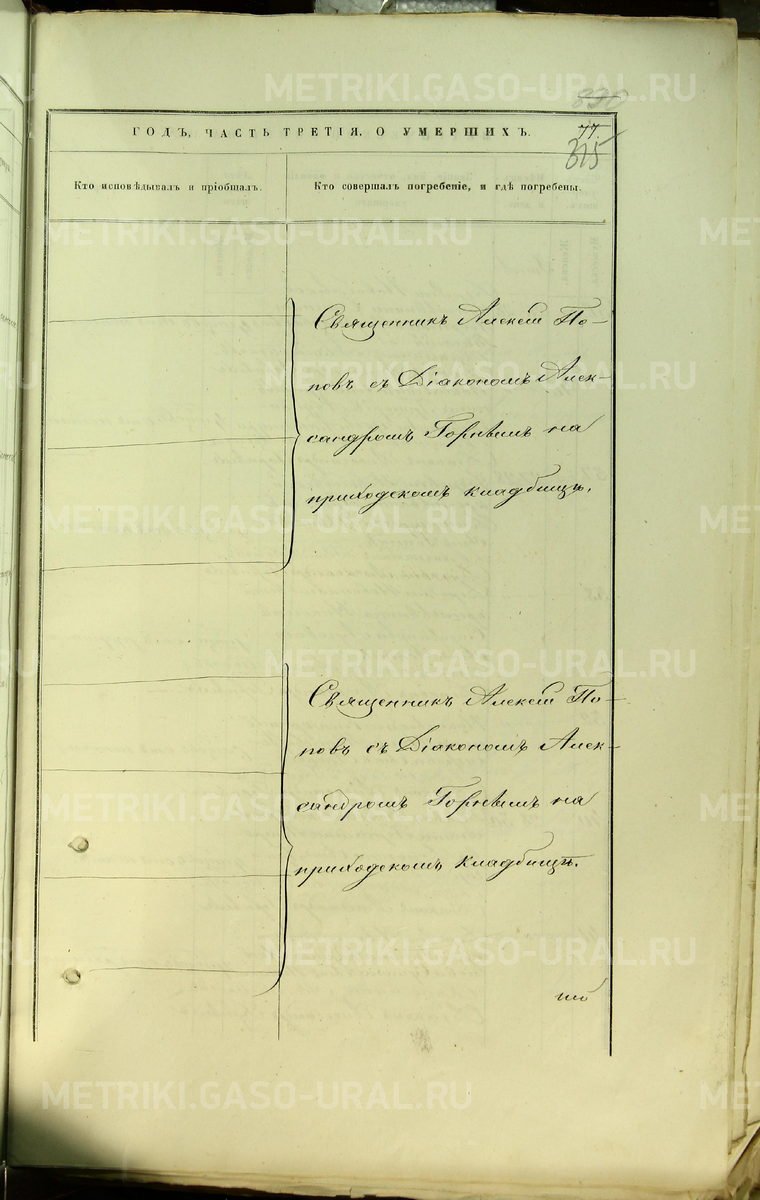 METRIKI.GASO-URAL.RU
830
ГОДЪ, ЧАСТЬ ТРЕТІЯ, О УМЕРШИХЪ.
77.
315
Кто исповѣдывалъ и пріобщалъ.
Кто совершалъ погребеніе, и гдѣ погребены.
Священникъ Алексій По-
повъ съ Діакономъ Алек-
сандромъ Горнымъ на
приходскомъ кладбищѣ.
Священникъ Алексій По-
повъ съ Діакономъ Алек-
сандромъ Горнымъ на
приходскомъ кладбищѣ.
METRIKI.GASO-URAL.RU